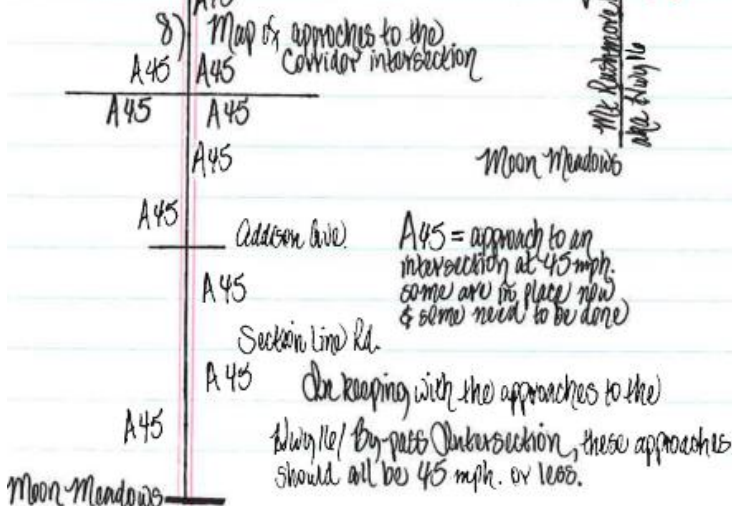 A45
8) Map of approches to the
Corrider intersection
A45 A45
A45 A45
A45
Mt Rushmore
aka Hwy 16
Moon Meadows
A45
Addison Ave.
A45 = approach to an
intersection at 45 mph.
some are in place now
& some need to be done
A45
Section Line Rd.
A45
In keeping with the approaches to the
A45
Hwy 16/ By-pass Intersection, these approaches
should all be 45 mph. or less.
Moon Meadows